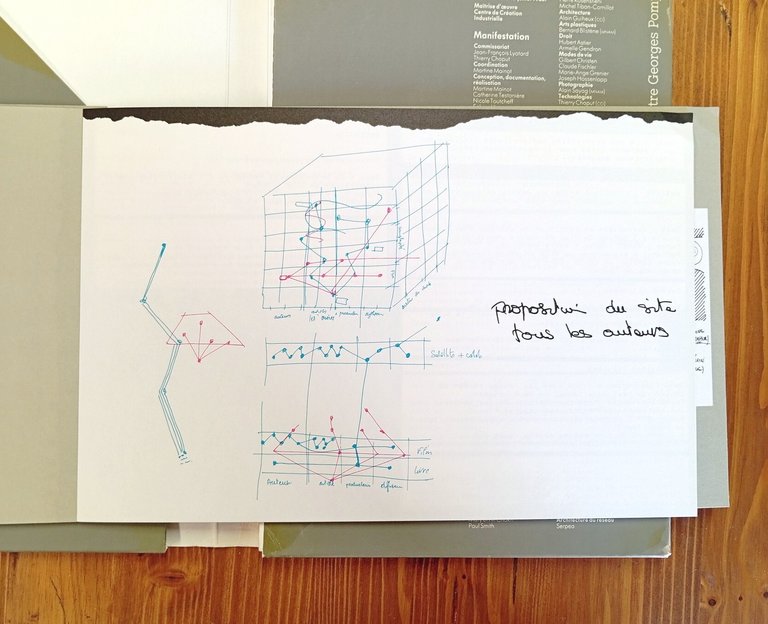 Maîtrise d'œuvre
Centre de Création
Industrielle
Manifestation
Commissariat
Jean-François Lyotard
Thierry Chaput
Coordination
Martine Moinot
Conception, documentation,
réalisation
Martine Moinot
Catherine Testanière
Nicole Toutcheff
Michel Tibon-Cornillot
Architecture
Alain Guiheux (CCI)
Arts plastiques
Bernard Blistène (MNAM)
Droit
Hubert Astier
Armelle Gendron
Modes de vie
Gilbert Christen
Claude Fischler
Marie-Ange Grenier
Joseph Hossenlopp
Photographie
Alain Sayag (MNAM)
Technologies
Thierry Chaput (CCI)
tre Georges Pom
auteurs
producteur
diffuseur
Satellite + cable
Film
Livre
Auteur
producteur
diffuseur
proposition du site
tous les auteurs
Paul Smith
Architecture du réseau
Serpea